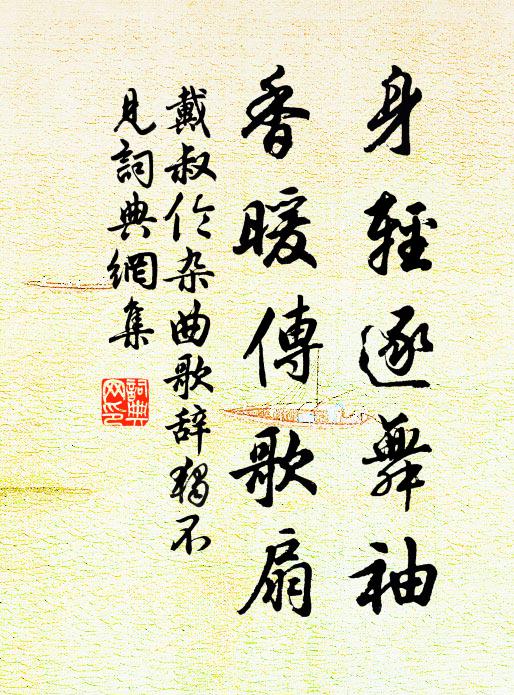 身輕逐舞袖
香暖傳歌扇
戴叔伦杂曲歌辞獨不
見詞典網集
詞典網印